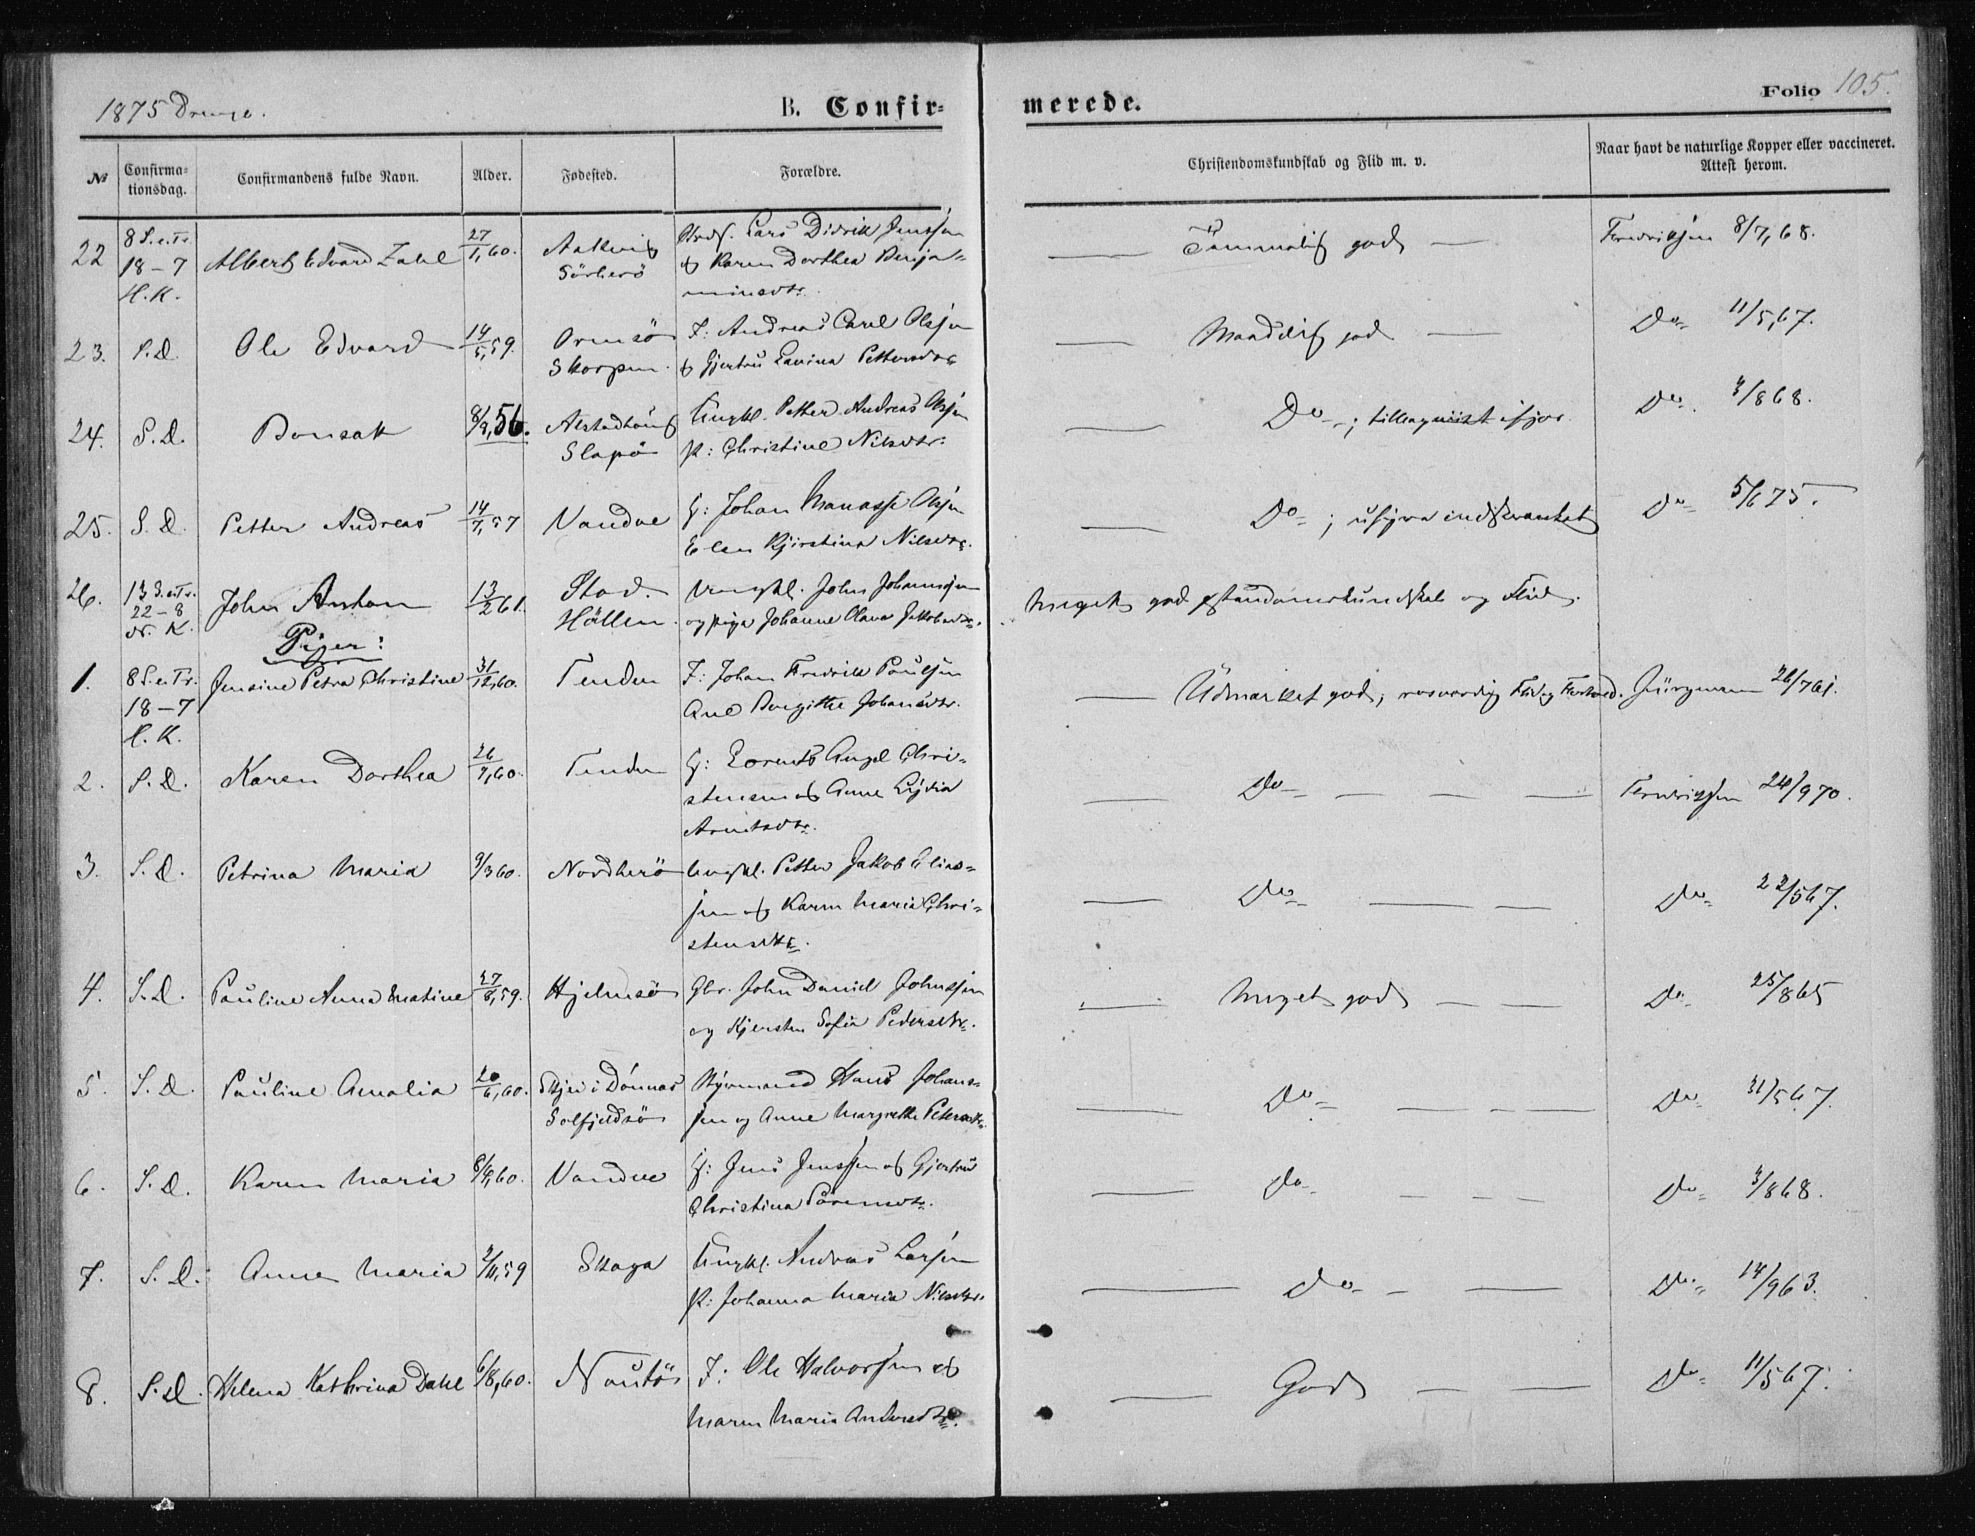 1875 Drenge.
B. Confir-
merede.
Folio 105.
№
Confirma-
tionsdag.
Confirmandens fulde Navn.
Alder.
Fødested.
Forældre.
Christendomskundskab og Flid m. v.
Naar havt de naturlige Kopper eller vaccineret.
Attest herom.
22 8 S. e. Tr. 27/1,60. Lars Didrik Jenssen
18-7 Albert Edvard Zahl og Karen Dorthea Benja-
H. K. Sörherö minsdtr.
Temmelig god Fredriksen 8/7,68.
23. S. D. Ole Edvard 14/5,59. Ormsö F: Andreas Carel Olsen
Skorpen. og Gjertru Lavina Pettersdtr
Maadelig god Do 11/5,67.
24. S. D. Bonsak 8/8,56. Alstadhoug Ungkl. Petter Andreas Olsen
Slapö P: Christine Nilsdtr.
Do; ifjor Do 3/868.
25. S. D. Petter Andreas 14/7,57 Vandve G: Johan Manasse Olsen
Elen Kjirstina Nilsdtr.
Do; indskrænket Do 5/675.
26. 13 S. e. Tr. John Anton 13/261. Stad. Ungkl. John Johannsen
22-8 Höllen. og pige Johanne Olava Jakobsdtr.
N. K.
Meget god Christendomskundskab og Flid.
Piger:
1. 8 S. e. Tr. Jensine Petra Christine 31/12,60. Tenden F: Johan Fredrik Paulsen
18-7 Ane Birgitte Johansdtr.
H. K.
Udmærket god; rosværdig Flid og Forhold. Jürgensen 26/761.
2. S. D. Karen Dorthea 26/7,60. Tenden G: Lorents Angel Chri-
stensen og Anne Lydia
Arntsdtr.
Do Fredriksen 24/970.
3. S. D. Petrina Maria 9/360. Nordherö Ungkl. Petter Jakob Elias-
sen og Karen Maria Chri-
stensdtr.
Do Do 22/567.
4. S. D. Pauline Anna Martine 27/8,59. Hjelmsö Gbr. John Daniel Johnsen
og Kjersten Sofia Pedersdtr.
Meget god Do 25/865
5. S. D. Pauline Amalia 20/6,60. Skjei i Dönnæs Styrmand Hans Johans-
Solfjeldsö sen og Anne Margrethe Petersdtr.
Do Do 31/567.
6. S. D. Karen Maria 8/4,60. Vandve G: Jens Jenssen og Gjertru
Christina Sörensdtr.
do Do 3/868.
7. S. D. Anne Maria 2/11,59 Skaga Ungkl. Andreas Larsen
P: Johanna Maria Nilsdtr.
do Do 14/963.
8. S. D. Helena Kathrina Dahl 6/8,60. Nautö F: Ole Halvorsen og
Maren Maria Andersdtr.
God Do 11/567.